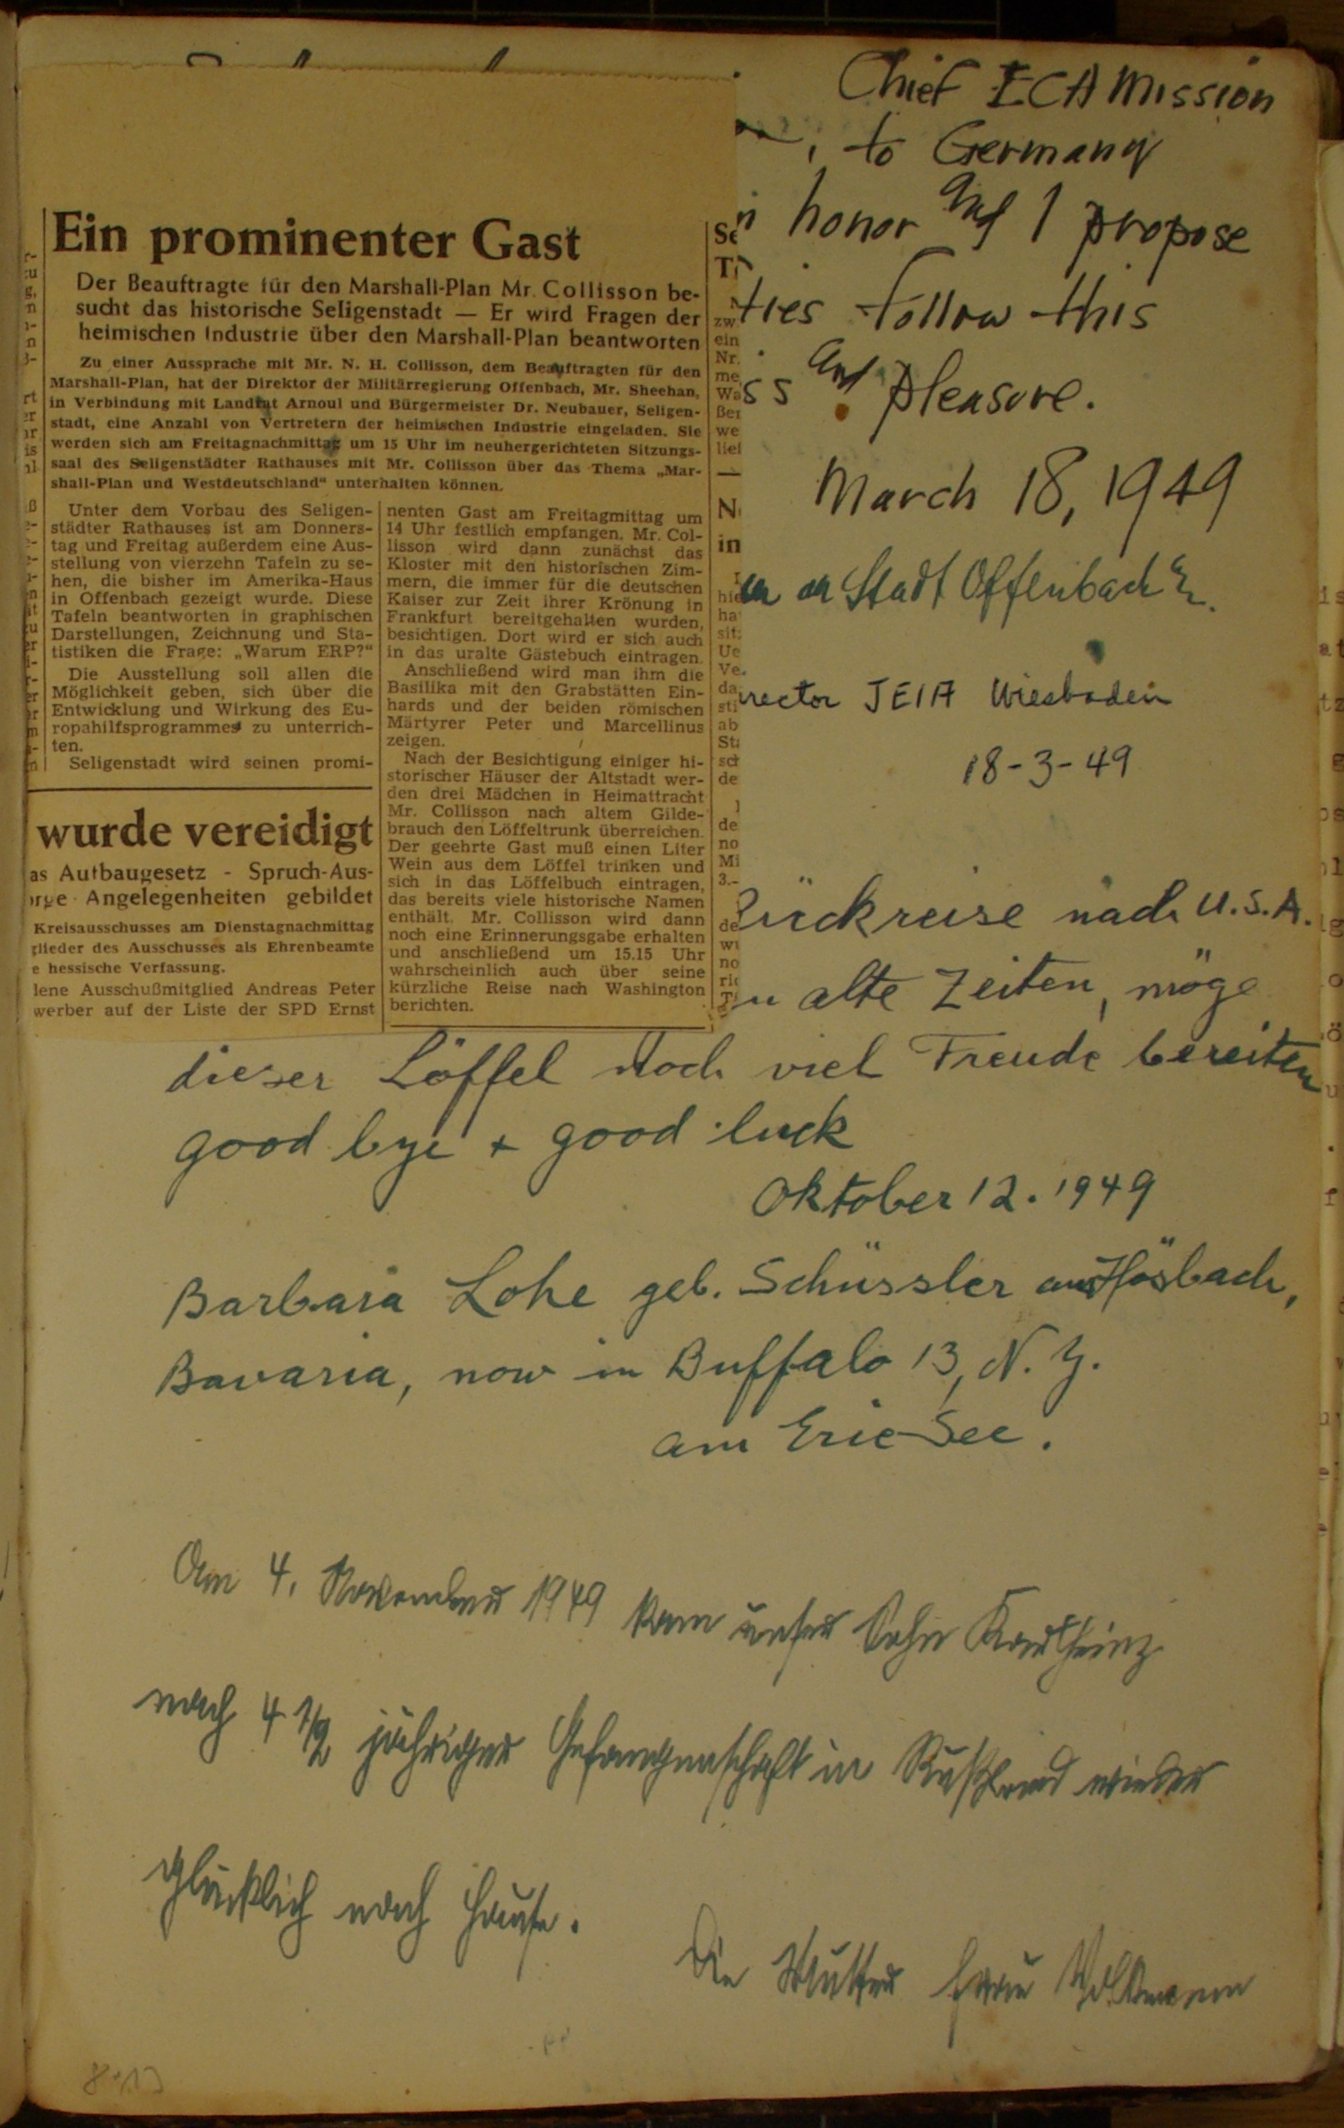 Chief ECA Mission
, to Germany
honor and I propose
ties follow this
ss and pleasure.
March 18, 1949
Stadt Offenbach
rector JEIA Wiesbaden
18-3-49
Ein prominenter Gast
Der Beauftragte für den Marshall-Plan Mr. Collisson be-
sucht das historische Seligenstadt — Er wird Fragen der
heimischen Industrie über den Marshall-Plan beantworten
Zu einer Aussprache mit Mr. N. H. Collisson, dem Beauftragten für den
Marshall-Plan, hat der Direktor der Militärregierung Offenbach, Mr. Sheehan,
in Verbindung mit Landrat Arnoul und Bürgermeister Dr. Neubauer, Seligen-
stadt, eine Anzahl von Vertretern der heimischen Industrie eingeladen. Sie
werden sich am Freitagnachmittag um 15 Uhr im neuhergerichteten Sitzungs-
saal des Seligenstädter Rathauses mit Mr. Collisson über das Thema „Mar-
shall-Plan und Westdeutschland“ unterhalten können.
Unter dem Vorbau des Seligen-
städter Rathauses ist am Donners-
tag und Freitag außerdem eine Aus-
stellung von vierzehn Tafeln zu se-
hen, die bisher im Amerika-Haus
in Offenbach gezeigt wurde. Diese
Tafeln beantworten in graphischen
Darstellungen, Zeichnung und Sta-
tistiken die Frage: „Warum ERP?“
Die Ausstellung soll allen die
Möglichkeit geben, sich über die
Entwicklung und Wirkung des Eu-
ropahilfsprogrammes zu unterrich-
ten.
Seligenstadt wird seinen promi-
nenten Gast am Freitagmittag um
14 Uhr festlich empfangen. Mr. Col-
lisson wird dann zunächst das
Kloster mit den historischen Zim-
mern, die immer für die deutschen
Kaiser zur Zeit ihrer Krönung in
Frankfurt bereitgehalten wurden,
besichtigen. Dort wird er sich auch
in das uralte Gästebuch eintragen.
Anschließend wird man ihm die
Basilika mit den Grabstätten Ein-
hards und der beiden römischen
Märtyrer Peter und Marcellinus
zeigen.
Nach der Besichtigung einiger hi-
storischer Häuser der Altstadt wer-
den drei Mädchen in Heimattracht
Mr. Collisson nach altem Gilde-
brauch den Löffeltrunk überreichen.
Der geehrte Gast muß einen Liter
Wein aus dem Löffel trinken und
sich in das Löffelbuch eintragen,
das bereits viele historische Namen
enthält. Mr. Collisson wird dann
noch eine Erinnerungsgabe erhalten
und anschließend um 15.15 Uhr
wahrscheinlich auch über seine
kürzliche Reise nach Washington
berichten.
wurde vereidigt
as Aufbaugesetz - Spruch-Aus-
orge Angelegenheiten gebildet
Kreisausschusses am Dienstagnachmittag
glieder des Ausschusses als Ehrenbeamte
e hessische Verfassung.
lene Ausschußmitglied Andreas Peter
werber auf der Liste der SPD Ernst
Rückreise nach U.S.A.
alte Zeiten, möge
dieser Löffel noch viel Freude bereiten
good bye + good luck
Oktober 12. 1949
Barbara Lohe geb. Schüssler aus Hösbach,
Bavaria, now in Buffalo 13, N. Y.
am Erie-See.
Am 4. November 1949 kam unser Sohn Karlheinz
nach 4 1/2 jähriger Gefangenschaft in Rußland wieder
glücklich nach Hause.
Die Mutter Frau Volkmann